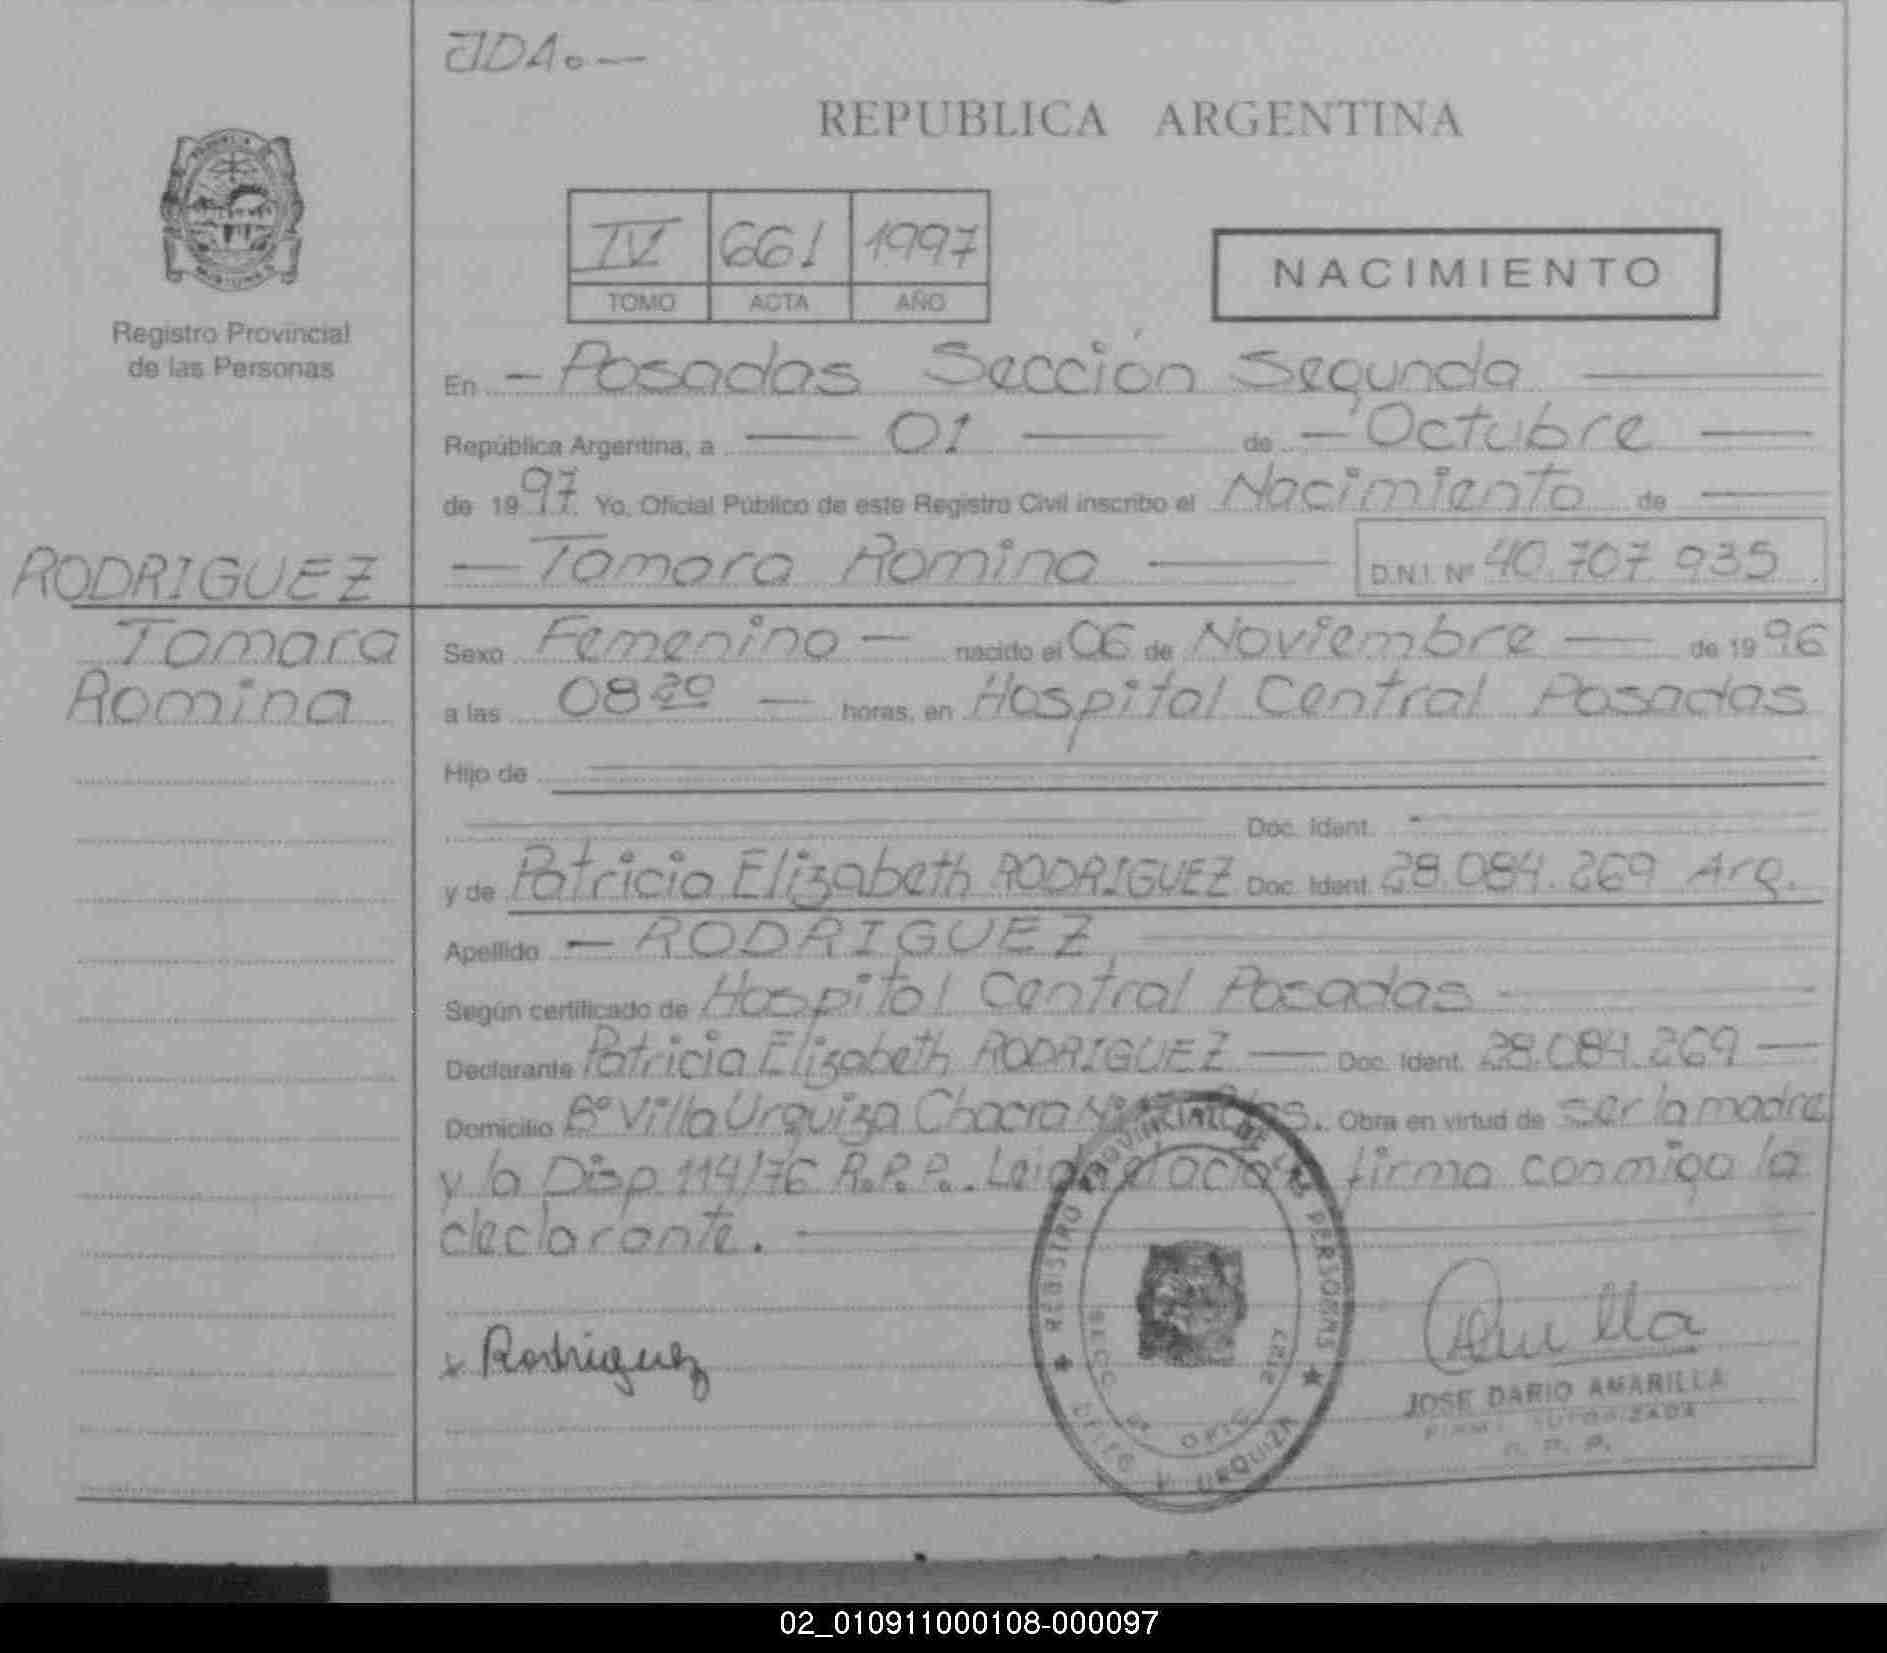 JDA.—
REPUBLICA ARGENTINA
IV 661 1997
TOMO ACTA AÑO
NACIMIENTO
Registro Provincial
de las Personas
En — Posadas Sección Segunda —
República Argentina, a — 01 — de — Octubre —
de 1997. Yo, Oficial Público de este Registro Civil inscribo el Nacimiento de —
— Tamara Romina — D.N.I. Nº 40.707.935
RODRIGUEZ
Tamara
Romina
Sexo Femenino — nacido el 06 de Noviembre — de 1996
a las 08 20 — horas, en Hospital Central Posadas
Hijo de —
— Doc. Ident. —
y de Patricia Elizabeth RODRIGUEZ Doc. Ident. 28.084.269 Arg.
Apellido — RODRIGUEZ —
Según certificado de Hospital Central Posadas —
Declarante Patricia Elizabeth RODRIGUEZ — Doc. Ident. 28.084.269 —
Domicilio Bº Villa Urquiza Chacra Obra en virtud de ser la madre
y la Disp. 114/76 R.P.P.. Leida el acta firma conmigo la
declarante. —
x Rodriguez
REGISTRO PROVINCIAL DE LAS PERSONAS
URQUIZA
JOSE DARIO AMARILLA
FIRMA AUTORIZADA
R. P. P.
02_010911000108-000097